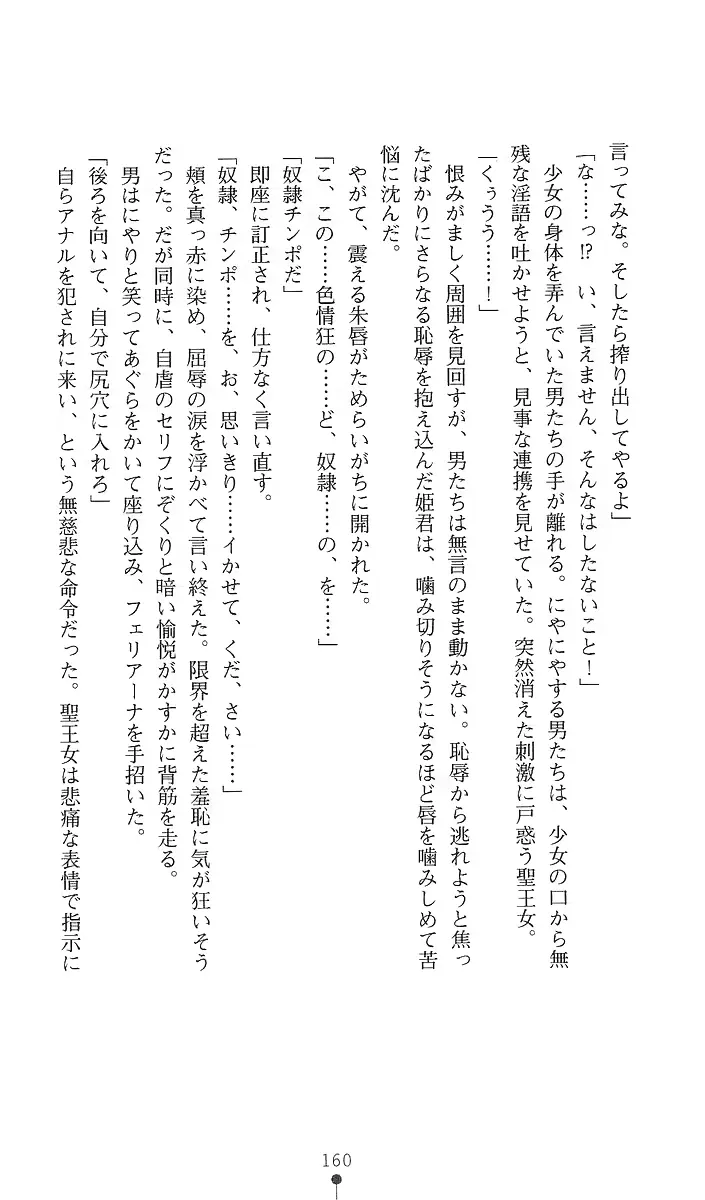 言ってみな。そしたら搾り出してやるよ」
「な……っ!?　い、言えません、そんなはしたないこと！」
少女の身体を弄んでいた男たちの手が離れる。にやにやする男たちは、少女の口から無
残な淫語を吐かせようと、見事な連携を見せていた。突然消えた刺激に戸惑う聖王女。
「くぅうう……！」
恨みがましく周囲を見回すが、男たちは無言のまま動かない。恥辱から逃れようと焦っ
たばかりにさらなる恥辱を抱え込んだ姫君は、噛み切りそうになるほど唇を噛みしめて苦
悩に沈んだ。
やがて、震える朱唇がためらいがちに開かれた。
「こ、この……色情狂の……ど、奴隷……の、を……」
「奴隷チンポだ」
即座に訂正され、仕方なく言い直す。
「奴隷、チンポ……を、お、思いきり……イかせて、くだ、さい……」
頬を真っ赤に染め、屈辱の涙を浮かべて言い終えた。限界を超えた羞恥に気が狂いそう
だった。だが同時に、自虐のセリフにぞくりと暗い愉悦がかすかに背筋を走る。
男はにやりと笑ってあぐらをかいて座り込み、フェリアーナを手招いた。
「後ろを向いて、自分で尻穴に入れろ」
自らアナルを犯されに来い、という無慈悲な命令だった。聖王女は悲痛な表情で指示に
160